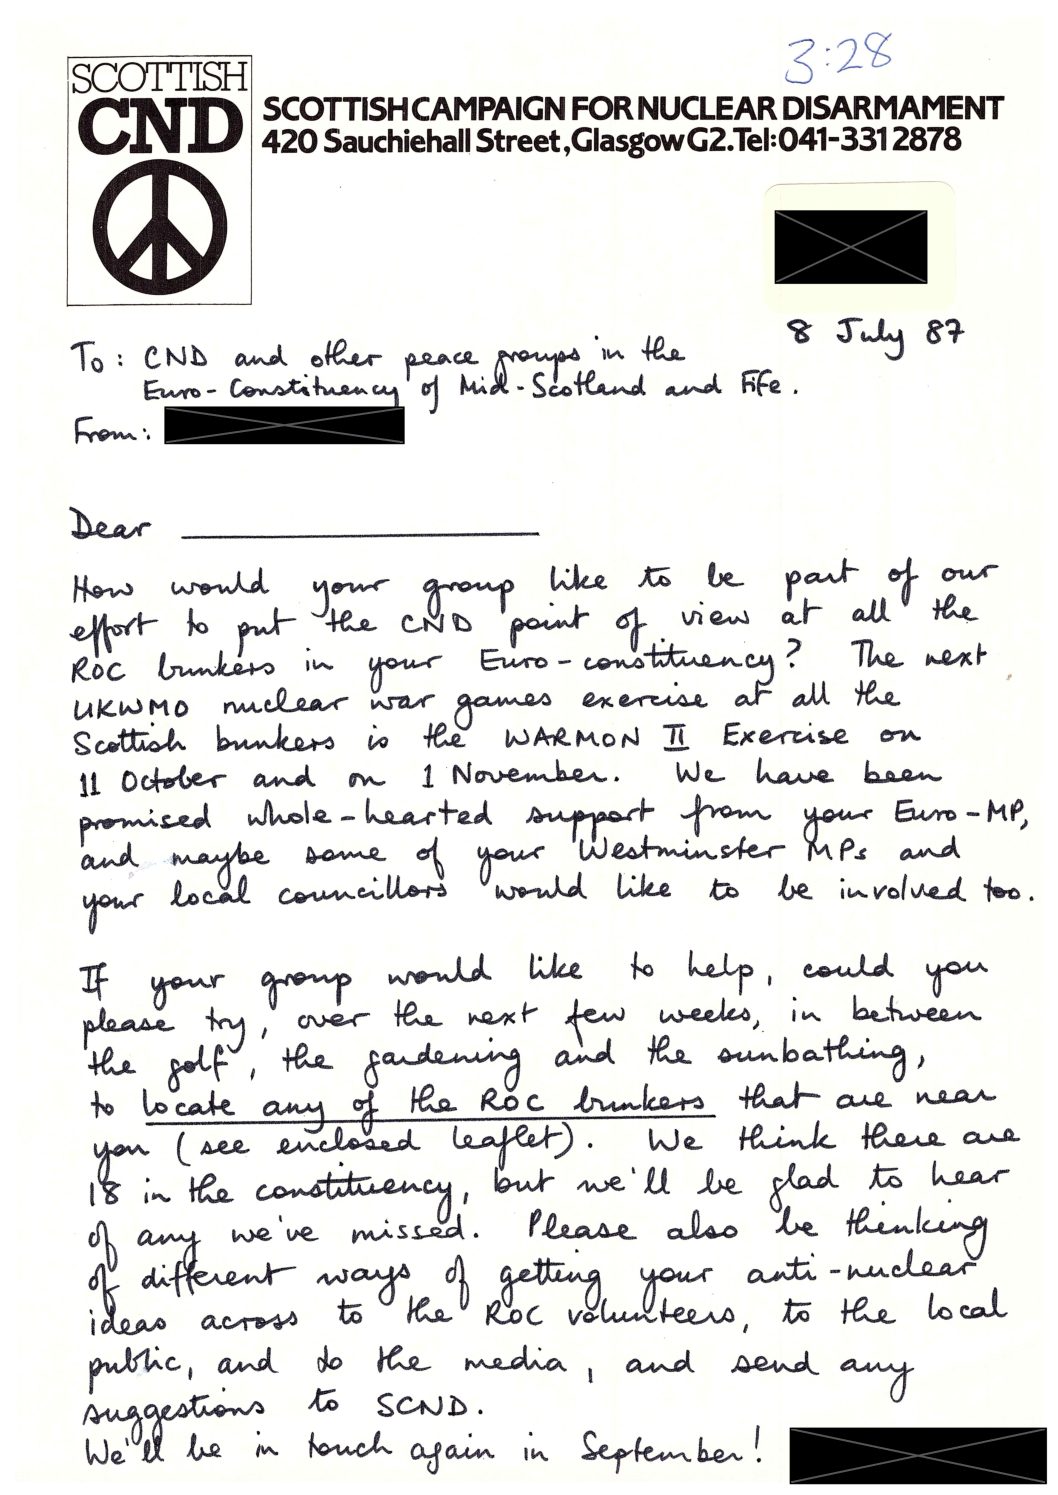 3:28
SCOTTISH
CND
SCOTTISH CAMPAIGN FOR NUCLEAR DISARMAMENT
420 Sauchiehall Street, Glasgow G2. Tel: 041-331 2878
8 July 87
To: CND and other peace groups in the
Euro-Constituency of Mid-Scotland and Fife.
From:
Dear
How would your group like to be part of our
effort to put the CND point of view at all the
ROC bunkers in your Euro-constituency? The next
UKWMO nuclear war games exercise at all the
Scottish bunkers is the WARMON II Exercise on
11 October and on 1 November. We have been
promised whole-hearted support from your Euro-MP,
and maybe some of your Westminster MPs and
your local councillors would like to be involved too.
If your group would like to help, could you
please try, over the next few weeks, in between
the golf, the gardening and the sunbathing,
to locate any of the ROC bunkers that are near
you (see enclosed leaflet). We think there are
18 in the constituency, but we'll be glad to hear
of any we've missed. Please also be thinking
of different ways of getting your anti-nuclear
ideas across to the ROC volunteers, to the local
public, and to the media, and send any
suggestions to SCND.
We'll be in touch again in September!